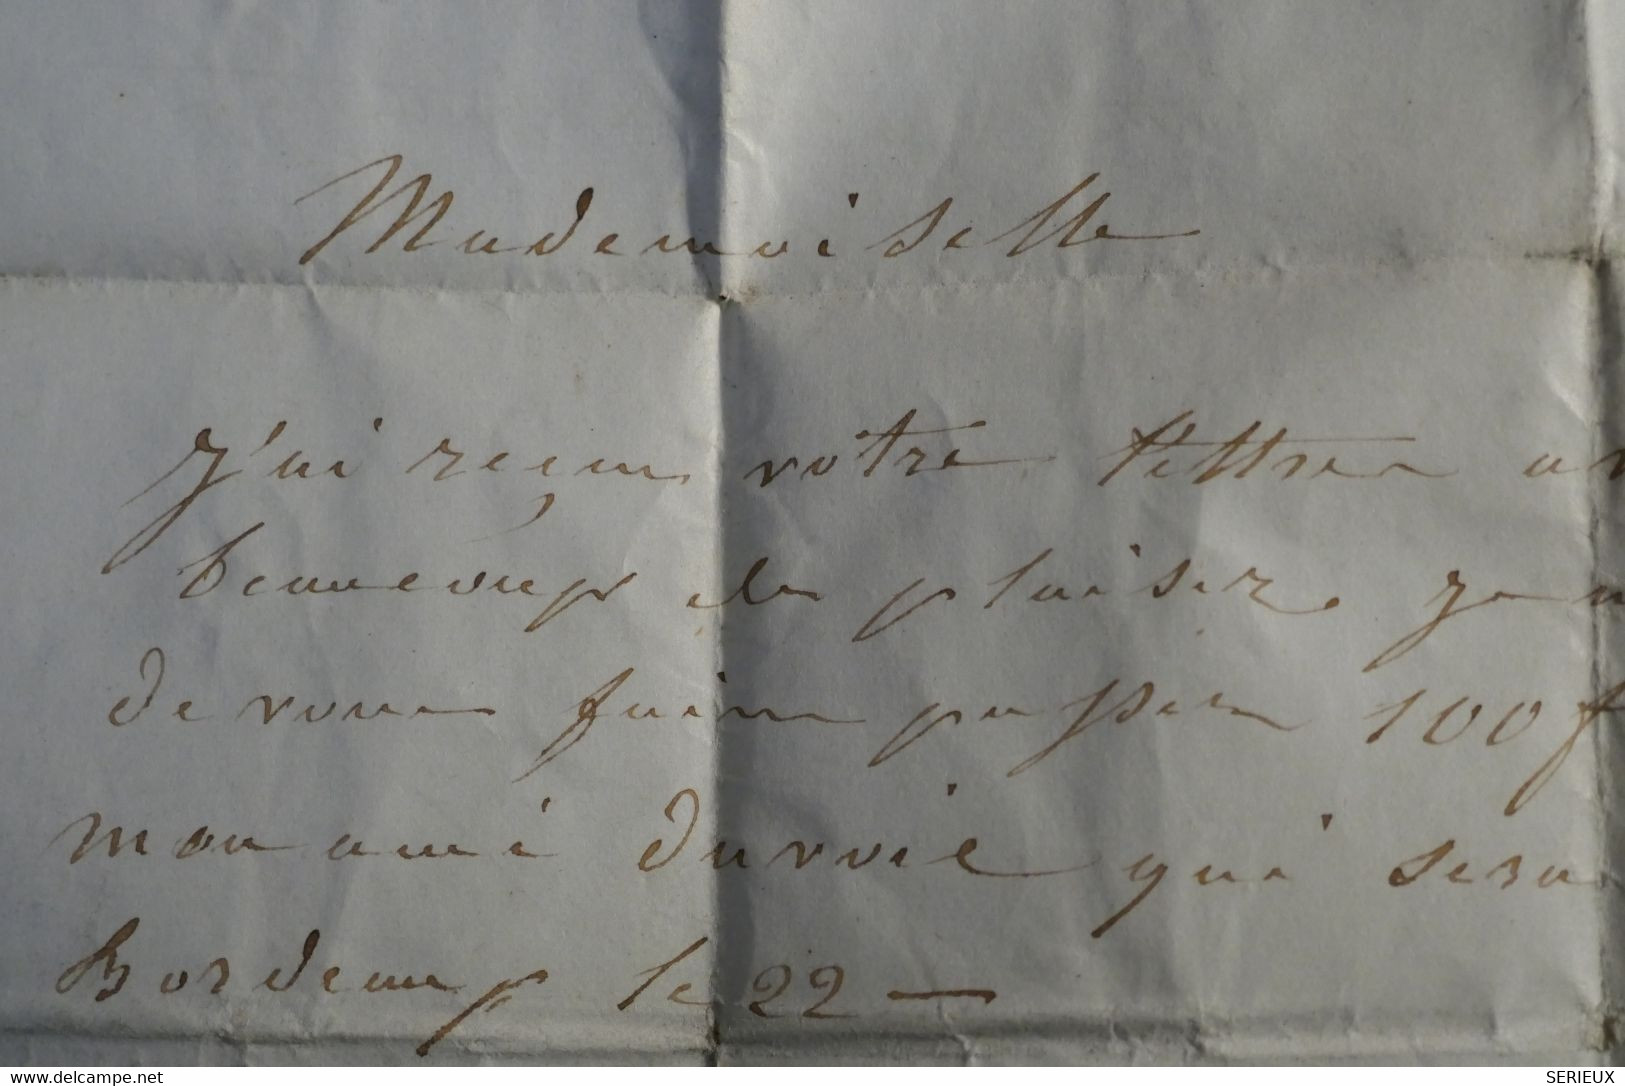 Mademoiselle
J'ai reçu votre lettre
beaucoup de plaisir
de vous faire passer 100 f
mon ami qui sera
Bordeaux le 22 —
www.delcampe.net
SERIEUX